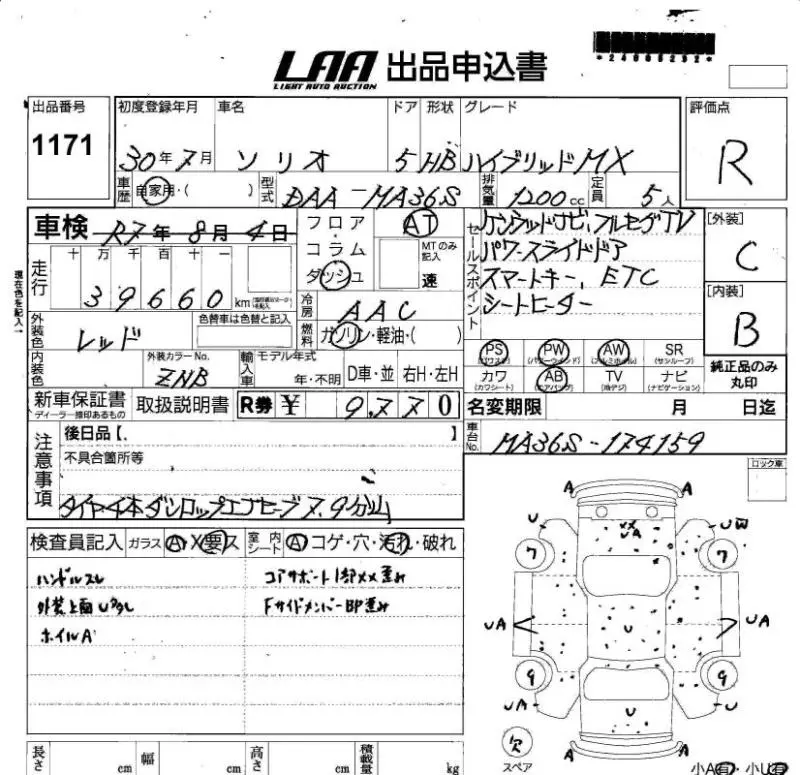 *24005232*
LAA 出品申込書
LIGHT AUTO AUCTION
出品番号
1171
初度登録年月 車名 ドア 形状 グレード
30年7月 ソリオ 5 HB ハイブリッドMX
評価点
R
車歴 自家用・( ) 型式 DAA-MA36S 排気量 1200cc 定員 5人
車検 R7年8月4日
フロア・コラム ダッシュ
AT
MTのみ記入
速
セールスポイント
パワースライドドア
スマートキー, ETC
シートヒーター
[外装]
C
[内装]
B
純正品のみ丸印
現在色を記入→
走行 十 万 千 百 十 一
39660 km
冷房 AAC
燃料 ガソリン・軽油・( )
外装色 レッド
色替車は色替と記入
内装色
外装カラーNo.
ZNB
輸入車 モデル年式
年・不明 D車・並 右H・左H
PS PW AW SR
(パワステ) (パワーウインド) (アルミホイル) (サンルーフ)
カワ AB TV ナビ
(カワシート) (エアバッグ) (地デジ) (ナビゲーション)
新車保証書
ディーラー捺印あるもの
取扱説明書 R券 ¥ 9,770
名変期限 月 日迄
車台No. MA36S-174159
注意事項
後日品【. 】
不具合箇所等
検査員記入 ガラス A・X要・ス 室内シート A コゲ・穴・汚れ・破れ
ハンドルスレ
外装上面U多し
ホイルA
コアサポート1部××歪み
Fサイドメンバー即歪み
ロック車
A A
U UW
××
UA
7 7
UA U UA
9 9
UA U U
A A
欠
スペア
小A有・小U有
長さ cm 幅 cm 高さ cm 積載量 kg